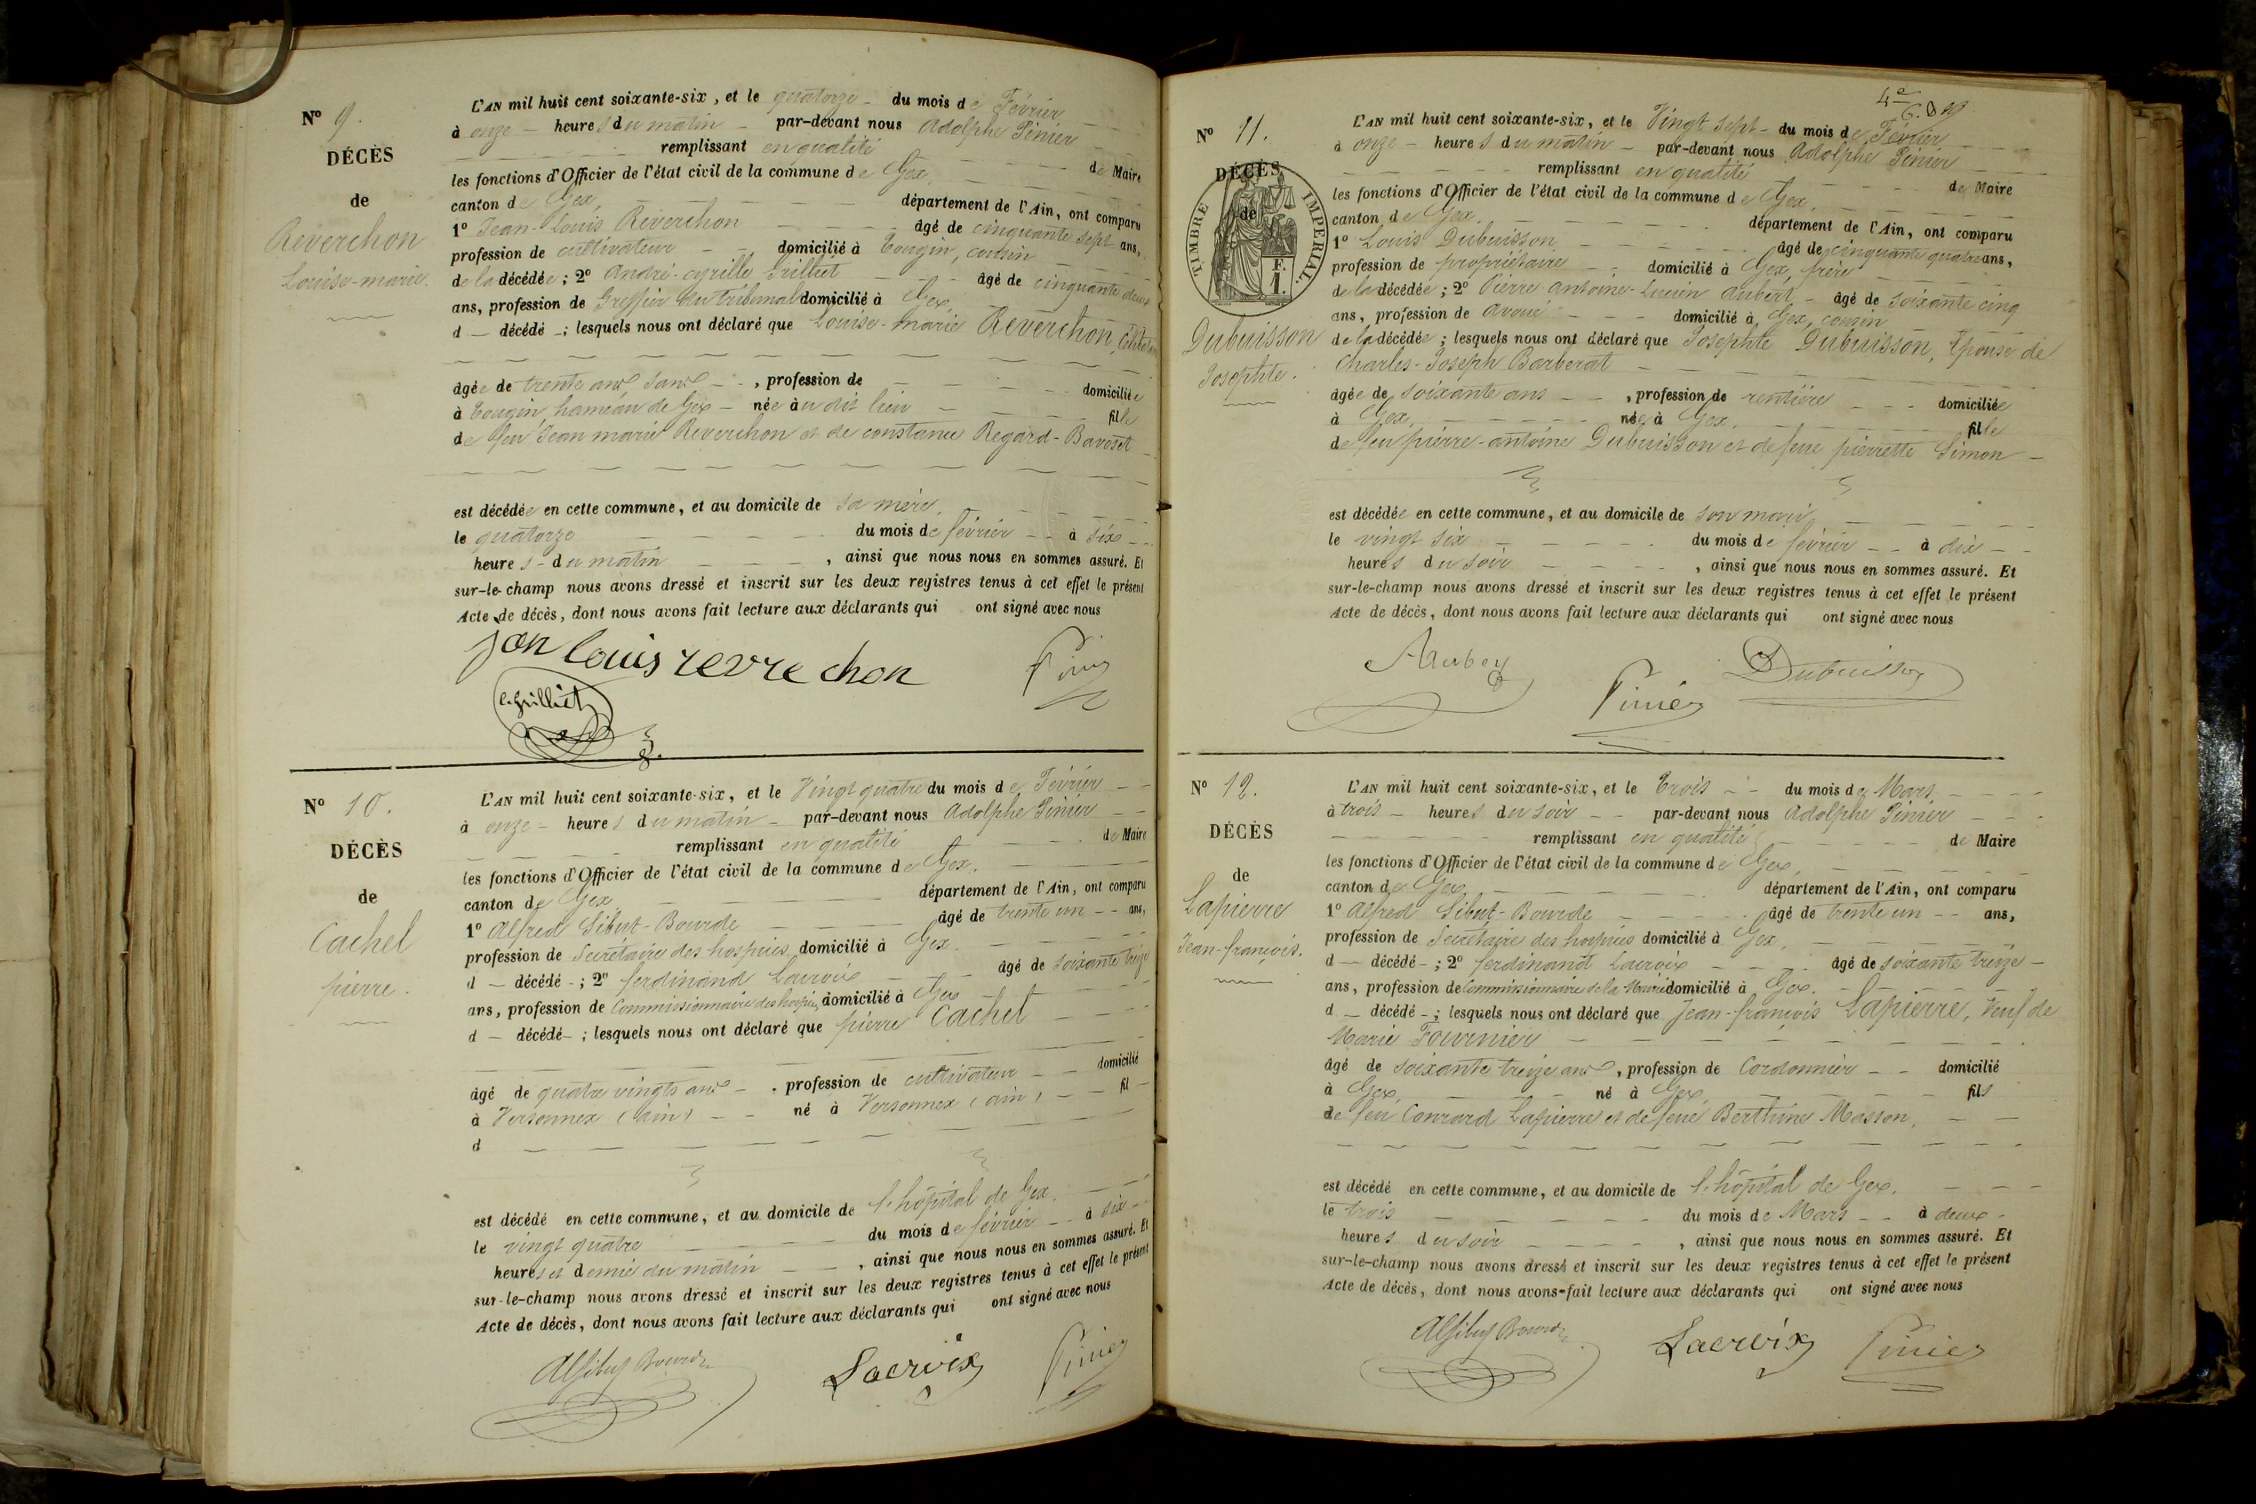 Nº 9.
DÉCÈS
de
Reverchon
Louise-marie.
L'AN mil huit cent soixante-six, et le quatorze du mois de Février
à onze heures du matin par-devant nous Adolphe Pinier
remplissant en qualité de Maire
les fonctions d'Officier de l'état civil de la commune de Gex,
canton de Gex, département de l'Ain, ont comparu
1º Jean-Louis Reverchon âgé de cinquante sept ans,
profession de cultivateur domicilié à Tougin, cousin
de la décédée; 2º André-cyrille Grilliet âgé de cinquante deux
ans, profession de Greffier du tribunal domicilié à Gex,
d décédé; lesquels nous ont déclaré que Louise-marie Reverchon, Célibataire
âgée de trente ans sans , profession de domiciliée
à Tougin, hameau de Gex née au dit lieu fille
de feu Jean marie Reverchon et de constance Regard-Bavoset
est décédée en cette commune, et au domicile de sa mère,
le quatorze du mois de février à six
heures du matin , ainsi que nous nous en sommes assuré. Et
sur-le-champ nous avons dressé et inscrit sur les deux registres tenus à cet effet le présent
Acte de décès, dont nous avons fait lecture aux déclarants qui ont signé avec nous
jan louis revrechon
Pinier
C. Grilliet
Nº 10.
DÉCÈS
de
Cachel
pierre.
L'AN mil huit cent soixante-six, et le Vingt quatre du mois de Février
à onze heures du matin par-devant nous Adolphe Pinier
remplissant en qualité de Maire
les fonctions d'Officier de l'état civil de la commune de Gex.
canton de Gex département de l'Ain, ont comparu
1º Alfred Sibut-Bourde âgé de trente un ans,
profession de Secrétaire des hospices, domicilié à Gex.
d décédé; 2º ferdinand Lacroix âgé de soixante treize
ans, profession de Commissionnaire des hospices domicilié à Gex
d décédé; lesquels nous ont déclaré que pierre Cachel
âgé de quatre vingts ans , profession de cultivateur domicilié
à Versonnex (ain) né à Versonnex (ain) fil
d
est décédé en cette commune, et au domicile de l'hôpital de Gex.
le vingt quatre du mois de février à dix
heures et demie du matin , ainsi que nous nous en sommes assuré. Et
sur-le-champ nous avons dressé et inscrit sur les deux registres tenus à cet effet le présent
Acte de décès, dont nous avons fait lecture aux déclarants qui ont signé avec nous
Al Sibut Bourde
Lacroix
Pinier
Nº 11.
DÉCÈS
de
TIMBRE IMPERIAL.
F.
1.
Dubuisson
Josephte.
L'AN mil huit cent soixante-six, et le Vingt sept du mois de Février
à onze heures du matin par-devant nous Adolphe Pinier
remplissant en qualité de Maire
les fonctions d'Officier de l'état civil de la commune de Gex,
canton de Gex, département de l'Ain, ont comparu
1º Louis Dubuisson âgé de cinquante quatre ans,
profession de propriétaire domicilié à Gex, frère
de la décédée; 2º Pierre antoine-Lucien Aubert âgé de soixante cinq
ans, profession de avoué domicilié à Gex, cousin
de la décédée; lesquels nous ont déclaré que Josephte Dubuisson, Epouse de
Charles-Joseph Barberat
âgée de soixante ans , profession de rentière domiciliée
à Gex, née à Gex, fille
de feu pierre-antoine Dubuisson et de feue pierrette Simon
est décédée en cette commune, et au domicile de son mari
le vingt six du mois de février à dix
heures du soir , ainsi que nous nous en sommes assuré. Et
sur-le-champ nous avons dressé et inscrit sur les deux registres tenus à cet effet le présent
Acte de décès, dont nous avons fait lecture aux déclarants qui ont signé avec nous
Pinier
Dubuisson
Nº 12.
DÉCÈS
de
Lapierre
Jean-françois.
L'AN mil huit cent soixante-six, et le Trois du mois de Mars
à trois heures du soir par-devant nous Adolphe Pinier
remplissant en qualité de Maire
les fonctions d'Officier de l'état civil de la commune de Gex,
canton de Gex, département de l'Ain, ont comparu
1º Alfred Sibut-Bourde âgé de trente un ans,
profession de Secrétaire des hospices domicilié à Gex,
d décédé; 2º ferdinand Lacroix âgé de soixante treize
ans, profession de Commissionnaire de la Mairie domicilié à Gex.
d décédé; lesquels nous ont déclaré que Jean-françois Lapierre, Veuf de
Marie Fournier
âgé de soixante treize ans , profession de Cordonnier domicilié
à Gex, né à Gex, fils
de feu Conrard Lapierre et de feue Berthine Masson,
est décédé en cette commune, et au domicile de l'hôpital de Gex.
le trois du mois de Mars à deux
heures du soir , ainsi que nous nous en sommes assuré. Et
sur-le-champ nous avons dressé et inscrit sur les deux registres tenus à cet effet le présent
Acte de décès, dont nous avons fait lecture aux déclarants qui ont signé avec nous
Al Sibut Bourde
Lacroix
Pinier